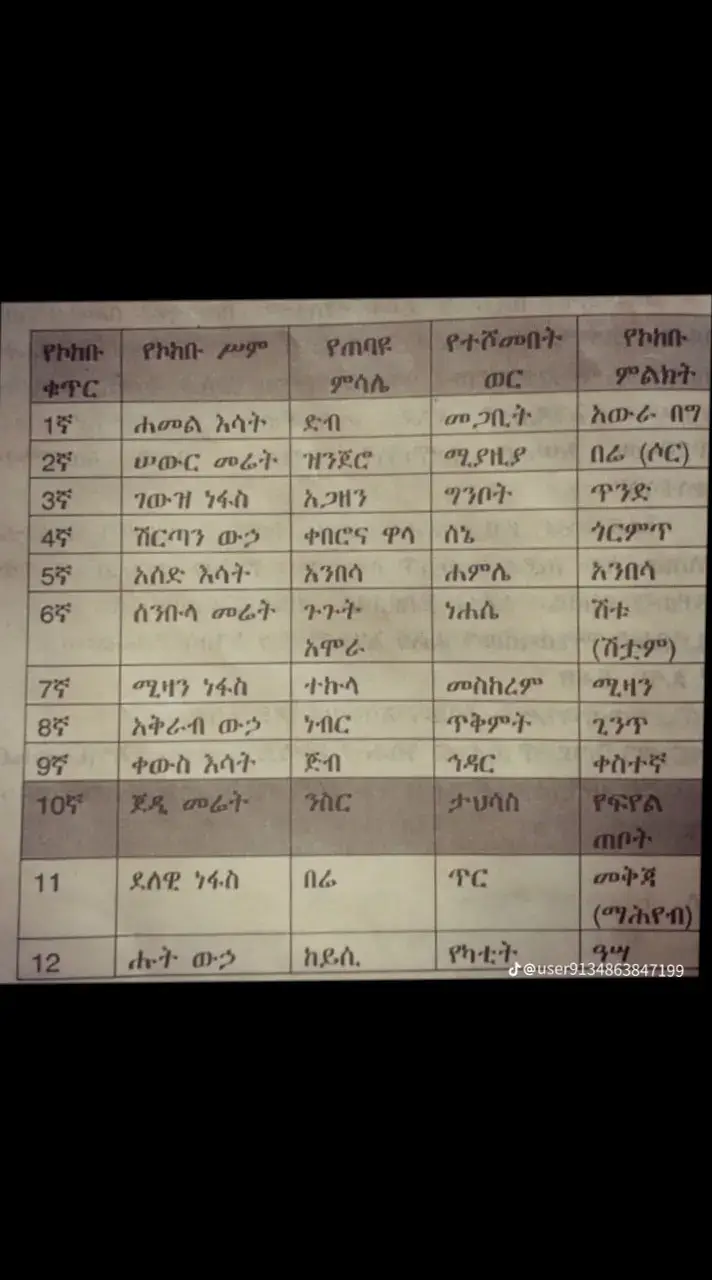 የኮከቡ ቁጥር | የኮከቡ ሥም | የጠባዩ ምሳሌ | የተሾመበት ወር | የኮከቡ ምልክት
1ኛ | ሐመል እሳት | ድብ | መጋቢት | አውራ በግ
2ኛ | ሠውር መሬት | ዝንጀሮ | ሚያዚያ | በሬ (ሶር)
3ኛ | ገውዝ ነፋስ | አጋዘን | ግንቦት | ጥንድ
4ኛ | ሸርጣን ውኃ | ቀበሮና ዋላ | ሰኔ | ጎርምጥ
5ኛ | አሰድ እሳት | አንበሳ | ሐምሌ | አንበሳ
6ኛ | ሰንቡላ መሬት | ጉጉት አሞራ | ነሐሴ | ሽቱ (ሽቷም)
7ኛ | ሚዛን ነፋስ | ተኩላ | መስከረም | ሚዛን
8ኛ | አቅራብ ውኃ | ነብር | ጥቅምት | ጊንጥ
9ኛ | ቀውስ እሳት | ጅብ | ኅዳር | ቀስተኛ
10ኛ | ጀዲ መሬት | ንስር | ታህሳስ | የፍየል ጠቦት
11 | ደለዊ ነፋስ | በሬ | ጥር | መቅጃ (ማሕየብ)
12 | ሑት ውኃ | ከይሲ | የካቲት | ዓሣ
@user9134863847199